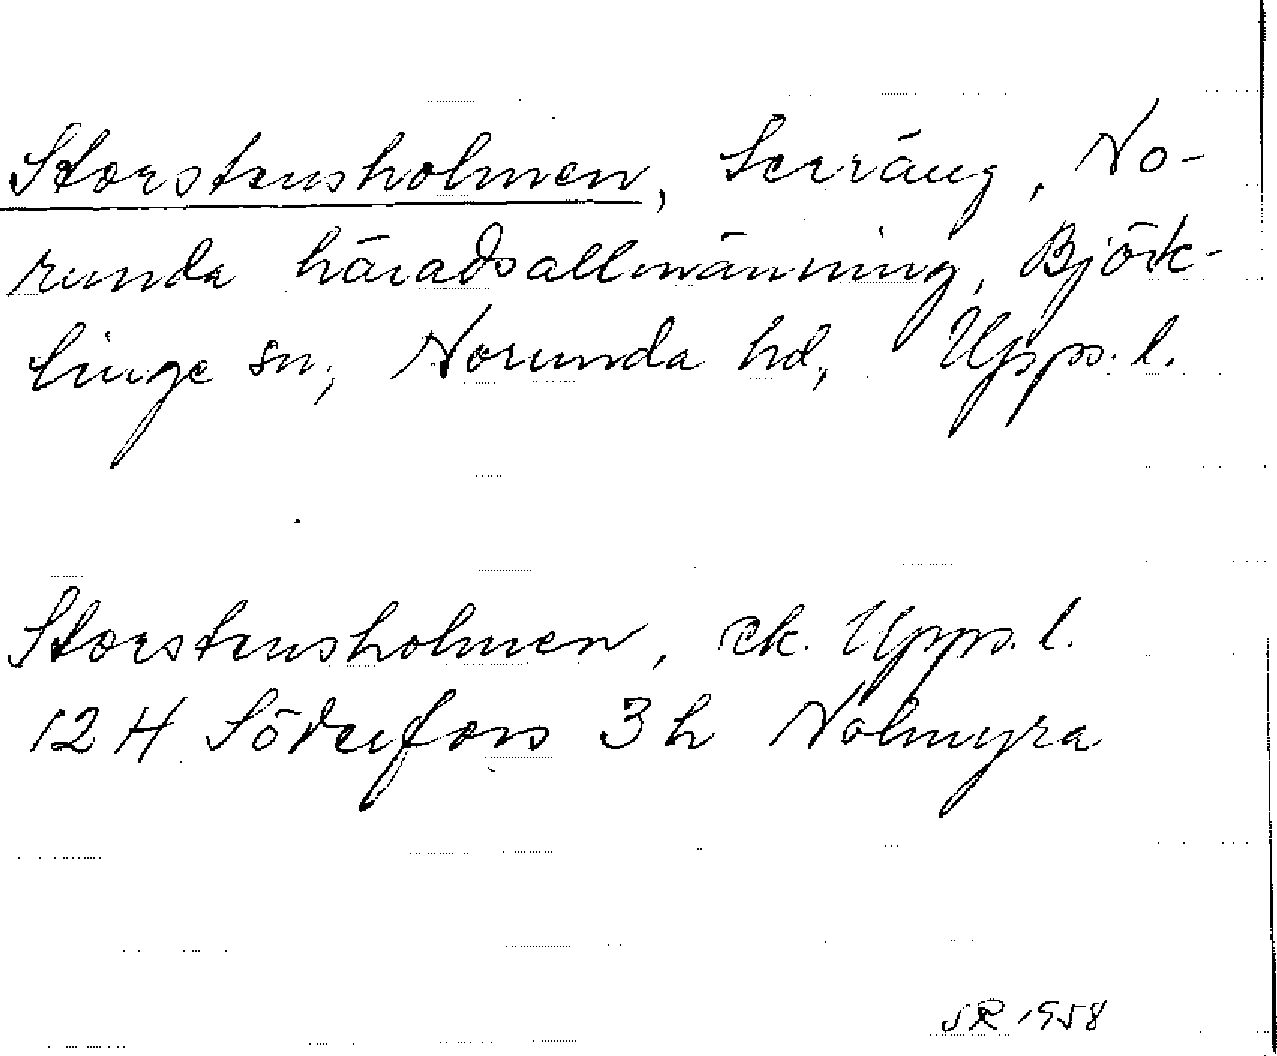 Storstensholmen, terräng, No-
runda häradsallmänning, Björk-
linge sn, Norunda hd, Upps. l.
Storstensholmen, ek. Upps. l.
12 H Söderfors 3 h Nolmyra
SR 1958